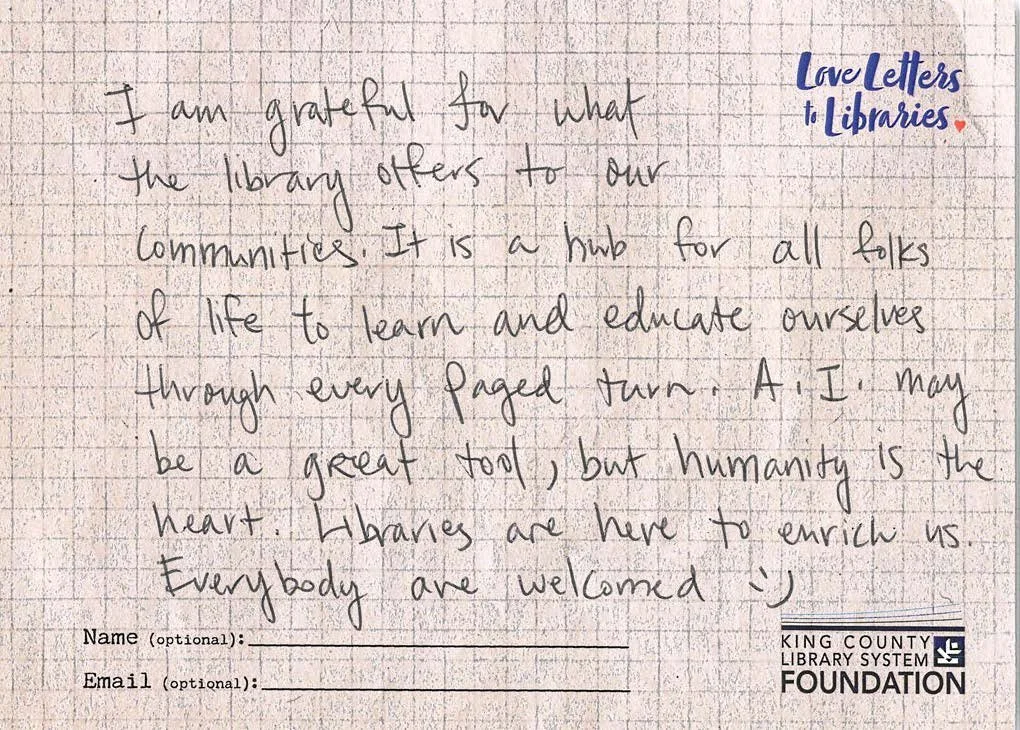 Love Letters
to Libraries
I am grateful for what
the library offers to our
communities. It is a hub for all folks
of life to learn and educate ourselves
through every paged turn. A.I. may
be a great tool, but humanity is the
heart. Libraries are here to enrich us.
Everybody are welcomed :)
Name (optional):
Email (optional):
KING COUNTY
LIBRARY SYSTEM
FOUNDATION